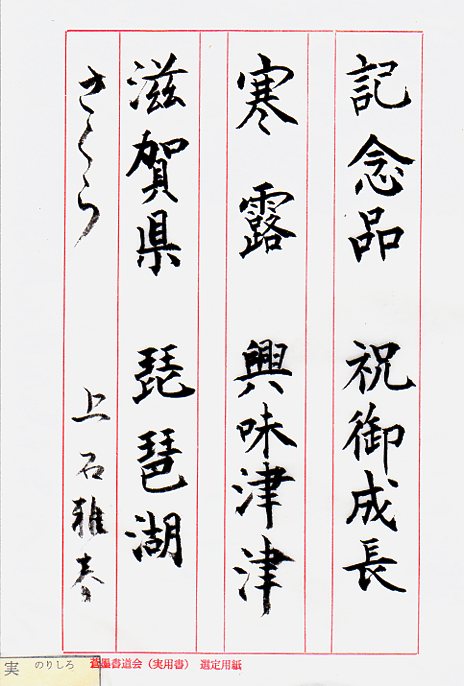 記念品 祝御成長
寒露 興味津津
滋賀県 琵琶湖
さくら 上石雅春
実 のりしろ 蒼墨書道会（実用書） 選定用紙